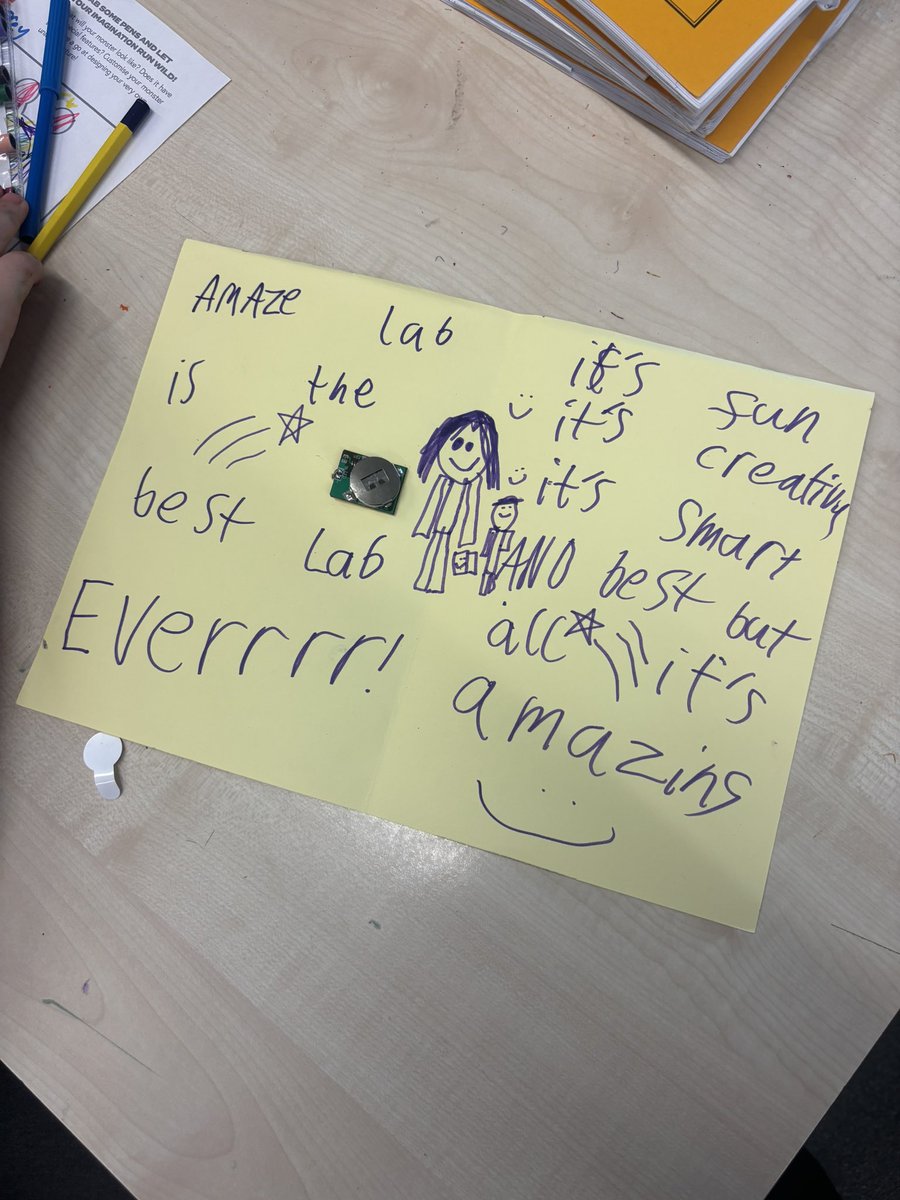 AB SOME PENS AND LET
OUR IMAGINATION RUN WILD!
will your monster look like? Does it have
features? Customise your monster
go at designing your very
AMAZE lab
is the
best Lab
Everrrr!
it's fun
it's creating
it's smart
AND best but
all it's
amazing